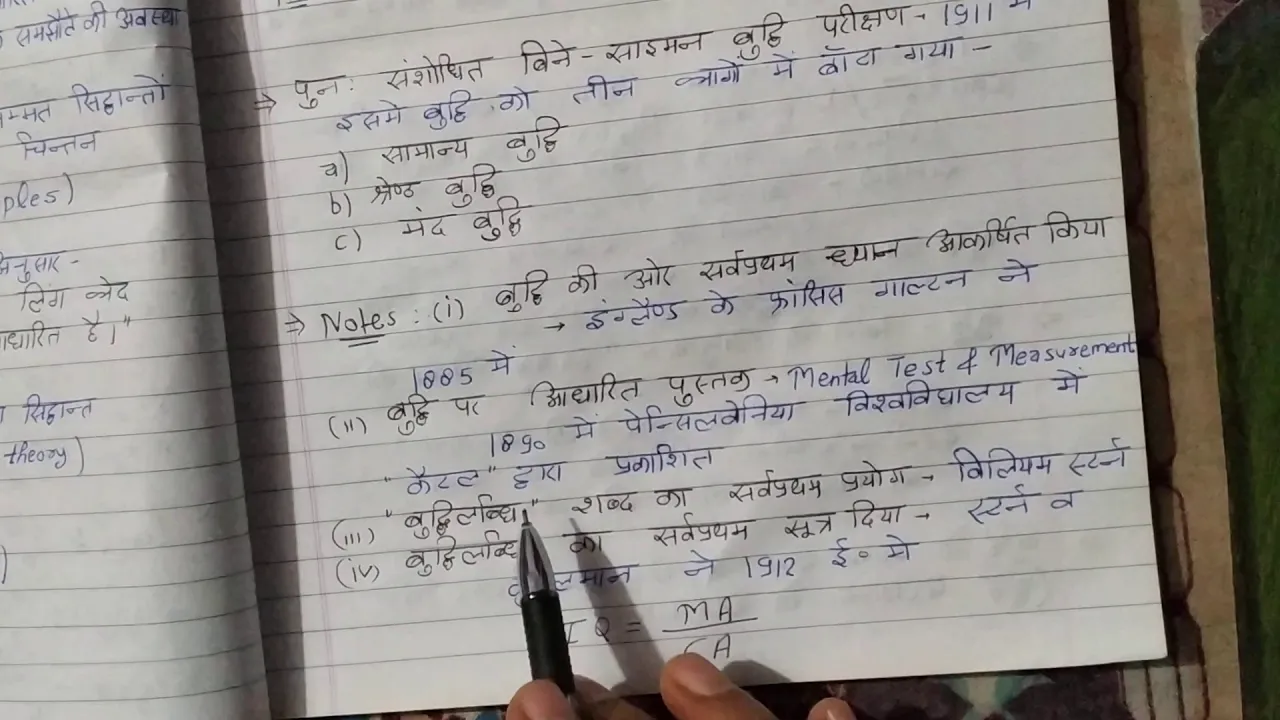 समझौते की अवस्था
म्मत सिद्धान्तों
चिन्तन
ples)
अनुसार-
लिंग भेद
आधारित है।"
सिद्धान्त
theory)
⇒ पुनः संशोधित बिने-साइमन बुद्धि परीक्षण- 1911 में
इसमे बुद्धि को तीन भागों में बाँटा गया -
a) सामान्य बुद्धि
b) श्रेष्ठ बुद्धि
c) मंद बुद्धि
⇒ Notes: (i) बुद्धि की ओर सर्वप्रथम ध्यान आकर्षित किया
→ इंग्लैण्ड के फ्रांसिस गाल्टन ने
1885 में
(ii) बुद्धि पर आधारित पुस्तक → Mental Test & Measurement
1890 में पेन्सिलवेनिया विश्वविद्यालय में
"कैटल" द्वारा प्रकाशित
(iii) "बुद्धिलब्धि" शब्द का सर्वप्रथम प्रयोग → विलियम स्टर्न
(iv) बुद्धिलब्धि का सर्वप्रथम सूत्र दिया → स्टर्न व
लमान ने 1912 ई० मे
IQ = MA
CA